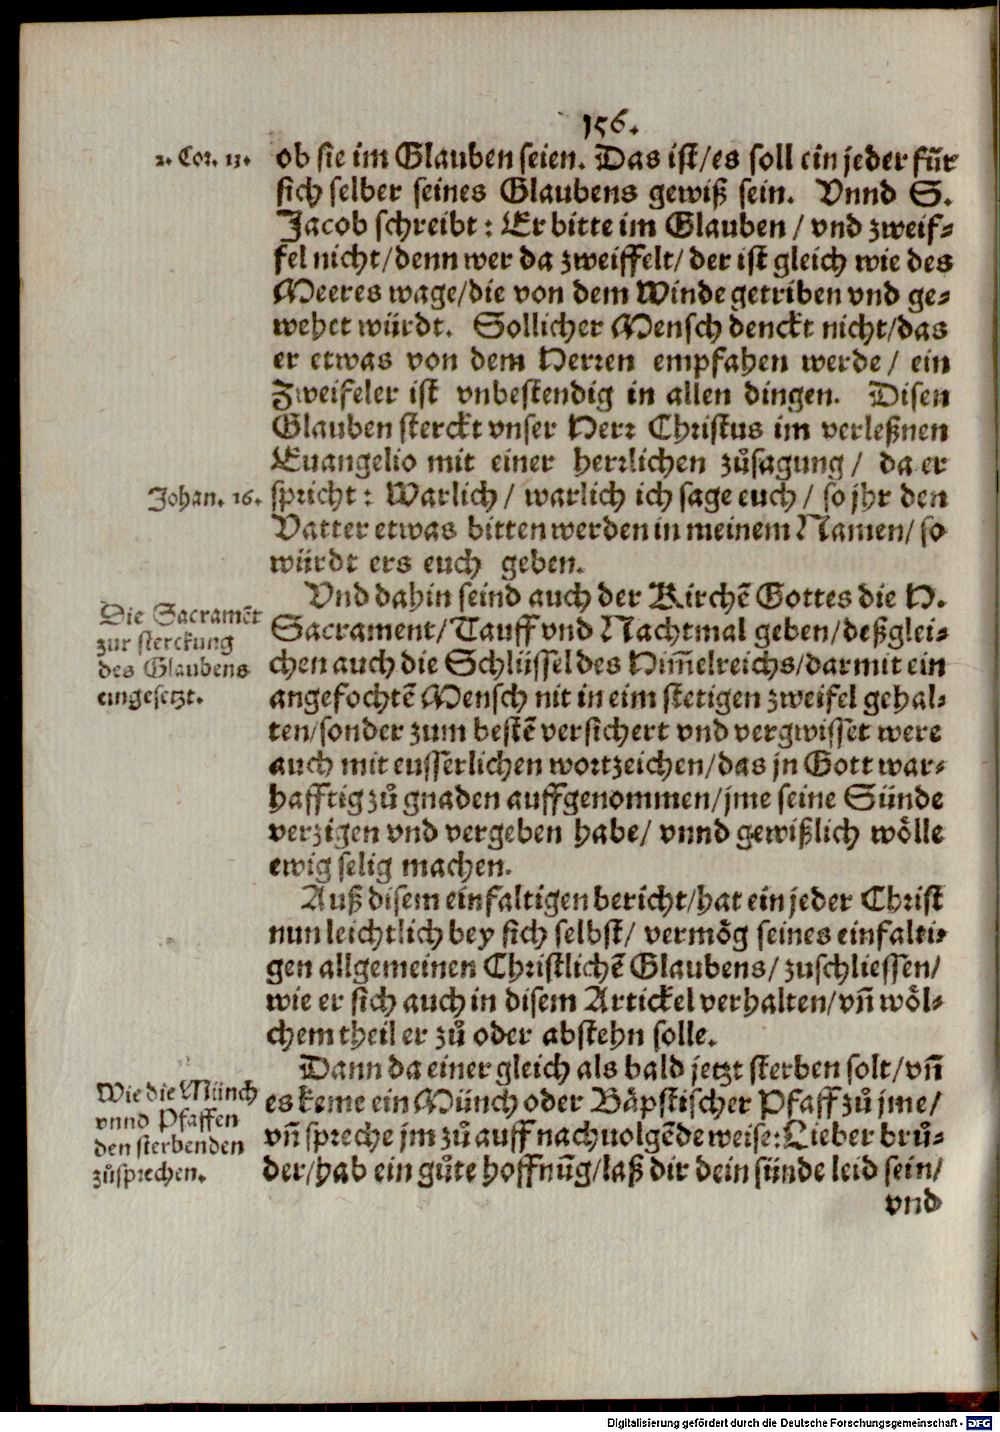 156.
2. Cor. 13. ob sie im Glauben seien. Das ist/es soll ein jeder für
sich selber seines Glaubens gewiß sein. Vnnd S.
Jacob schreibt: Er bitte im Glauben / vnd zweif-
fel nicht/denn wer da zweiffelt/ der ist gleich wie des
Meeres wage/die von dem Winde getriben vnd ge-
wehet würdt. Sollicher Mensch denckt nicht/das
er etwas von dem Herren empfahen werde / ein
Zweifeler ist vnbestendig in allen dingen. Disen
Glauben sterckt vnser Herr Christus im verleßnen
Euangelio mit einer herrlichen zůsagung / da er
Johan. 16. spricht: Warlich / warlich ich sage euch / so jhr den
Vatter etwas bitten werden in meinem Namen/ so
würdt ers euch geben.
Vnd dahin seind auch der Kirchẽ Gottes die H.
Die Sacramẽt
zur sterckung
des Glaubens
eingesetzt.
Sacrament/Tauff vnd Nachtmal geben/deßglei-
chen auch die Schlüssel des Him̃elreichs/darmit ein
angefochtẽ Mensch nit in eim stetigen zweifel gehal-
ten/sonder zum bestẽ versichert vnd vergwisset were
auch mit eusserlichen wortzeichen/das jn Gott war-
hafftig zů gnaden auffgenommen/jme seine Sünde
verzigen vnd vergeben habe/ vnnd gewißlich wölle
ewig selig machen.
Auß disem einfaltigen bericht/hat ein jeder Christ
nun leichtlich bey sich selbst/ vermög seines einfalti-
gen allgemeinen Christlichẽ Glaubens/ zuschliessen/
wie er sich auch in disem Artickel verhalten/vñ wöl-
chem theil er zů oder abstehn solle.
Dann da einer gleich als bald jetzt sterben solt/vñ
Wie die Münch
vnnd Pfaffen
den sterbenden
zůsprechen.
es keme ein Münch oder Bäpstischer Pfaff zů jme/
vñ spreche jm zů auff nachuolgẽde weise: Lieber brů-
der/hab ein gůte hoffnũg/laß dir dein sünde leid sein/
vnd
Digitalisierung gefördert durch die Deutsche Forschungsgemeinschaft - DFG